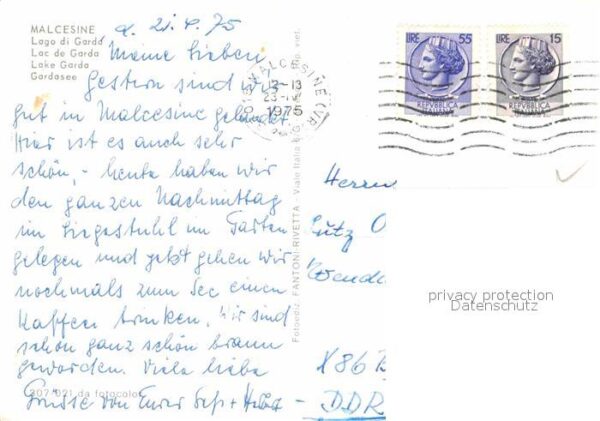 MALCESINE
Lago di Garda
Lac de Garda
Lake Garda
Gardasee
d. 21.4.75
Meine Lieben
Gestern sind wir
gut in Malcesine gelandet.
Hier ist es auch sehr
schön, - heute haben wir
den ganzen Nachmittag
im Liegestuhl im Garten
gelegen und jetzt gehen wir
nochmals zum See einen
Kaffee trinken. Wir sind
schon ganz schön braun
geworden. Viele liebe
Grüsse von Eurer
307/021 da fotocolor
Fotoediz. FANTONI-RIVETTA - Viale Italia
Rip. viet.
MALCESINE (VR)
12-13
1975
LIRE 55
REPVBBLICA
ITALIANA
LIRE 15
REPVBBLICA
ITALIANA
Herrn
Lutz
X86
DDR
privacy protection
Datenschutz